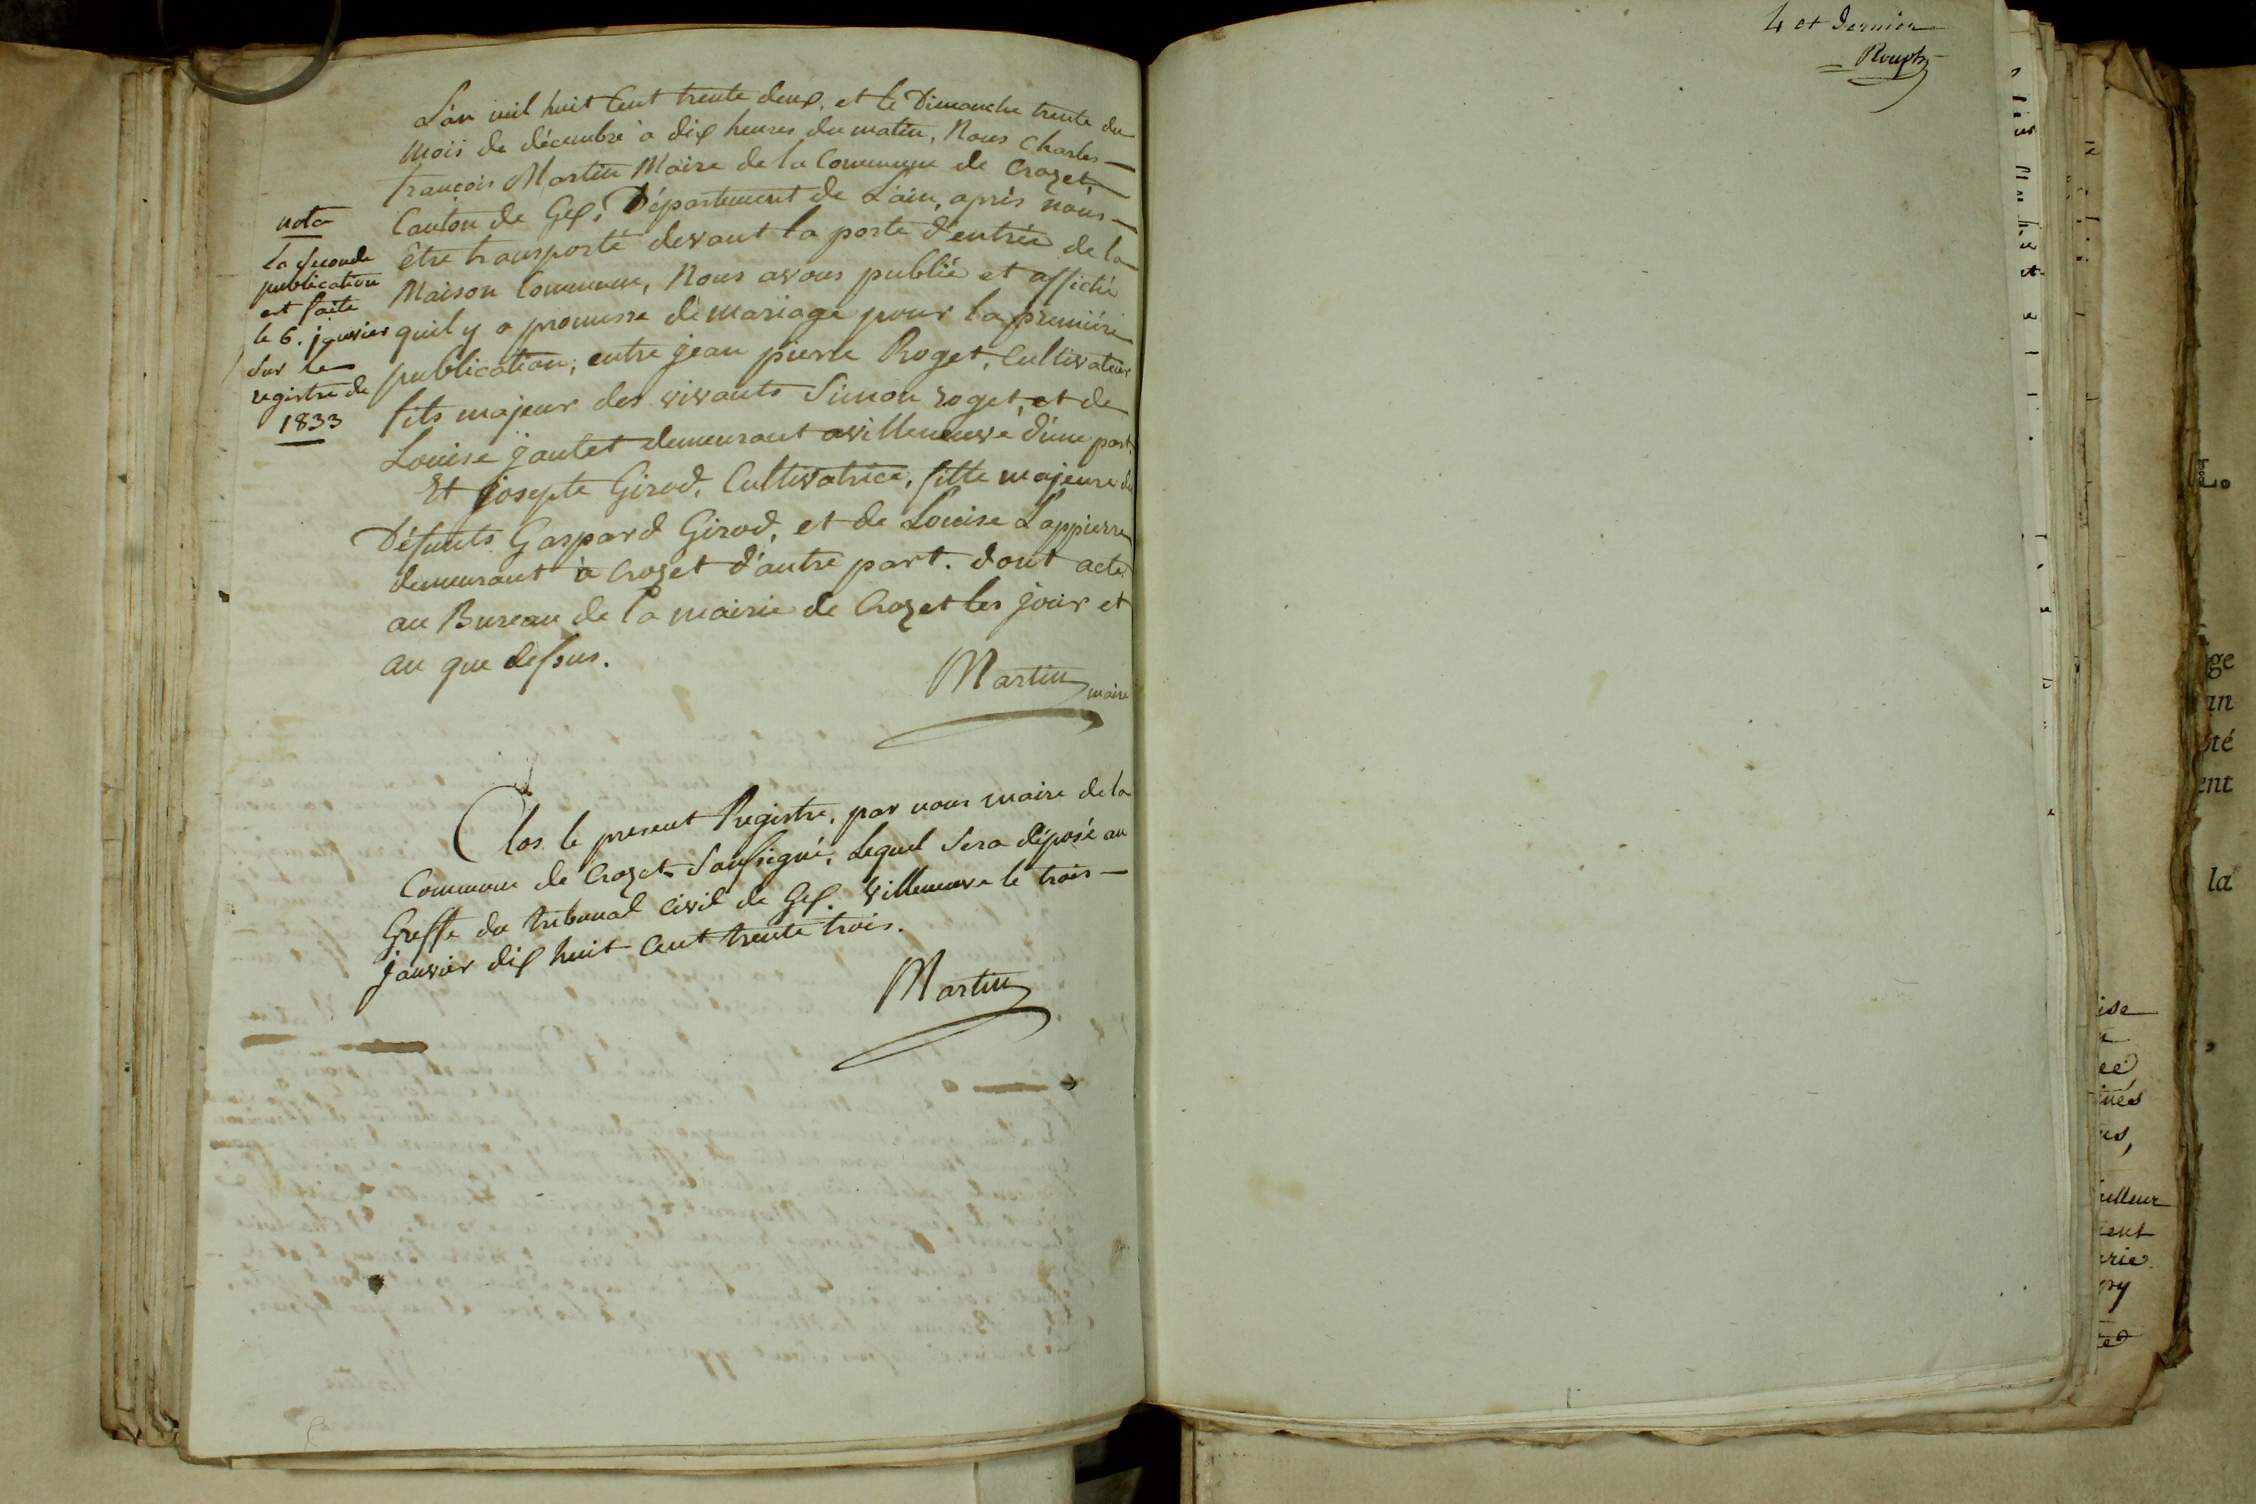 4 et dernier
L'an mil huit Cent trente deux, et le Dimanche trente du
mois de décembre à dix heures du matin, Nous Charles
françois Martin Maire de la Commune de Crozet,
Canton de Gex, Département de L'ain, après nous
être transporté devant la porte d'entrée de la
Maison Commune, Nous avons publié et affiché
quil y a promesse de mariage pour la première
publication, entre jean pierre Roget, Cultivateur
fils majeur des vivants Simon roget, et de
Louise jantet demeurant a villeneuve d'une part.
Et josepte Girod, Cultivatrice, fille majeure des
Défunts Gaspard Girod, et de Louise Lappierre
demeurant à Crozet d'autre part. dont acte
au Bureau de la mairie de Crozet les jour et
an que dessus.
Martin maire
nota
la seconde
publication
est faite
le 6. janvier
sur le
registre de
1833
Clos le present Registre, par nous maire de la
Commune de Crozet Soussigné, Lequel Sera déposé au
Greffe du tribunal Civil de Gex. Villeneuve le trois
janvier dix huit Cent trente trois.
Martin
ge
an
té
ent
la